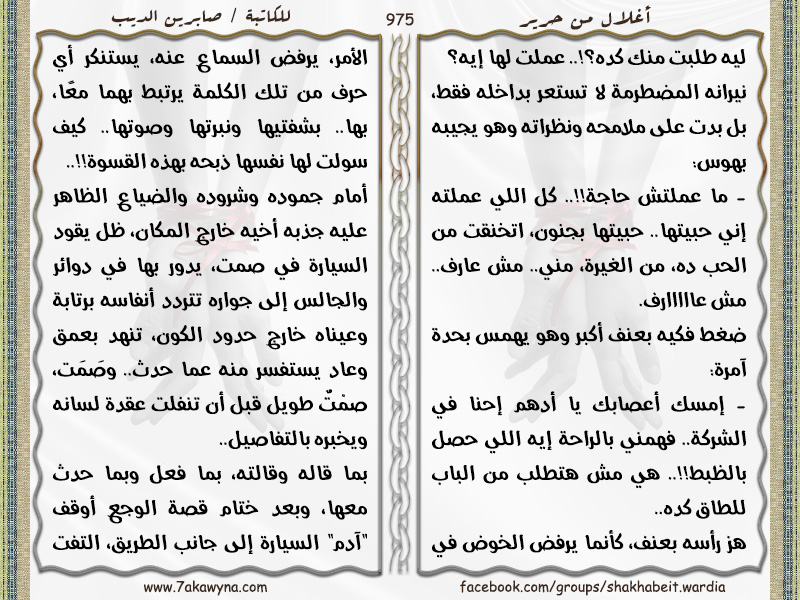 أغلال من حرير
975
للكاتبة / صابرين الديب
ليه طلبت منك كده؟!.. عملت لها إيه؟
نيرانه المضطرمة لا تستعر بداخله فقط،
بل بدت على ملامحه ونظراته وهو يجيبه
بهوس:
- ما عملتش حاجة!!.. كل اللي عملته
إني حبيتها.. حبيتها بجنون، اتخنقت من
الحب ده، من الغيرة، مني.. مش عارف..
مش عااااارف.
ضغط فكيه بعنف أكبر وهو يهمس بحدة
آمرة:
- إمسك أعصابك يا أدهم إحنا في
الشركة.. فهمني بالراحة إيه اللي حصل
بالظبط!!.. هي مش هتطلب من الباب
للطاق كده..
هز رأسه بعنف، كأنما يرفض الخوض في
الأمر، يرفض السماع عنه، يستنكر أي
حرف من تلك الكلمة يرتبط بهما معًا،
بها.. بشفتيها ونبرتها وصوتها.. كيف
سولت لها نفسها ذبحه بهذه القسوة!!..
أمام جموده وشروده والضياع الظاهر
عليه جذبه أخيه خارج المكان، ظل يقود
السيارة في صمت، يدور بها في دوائر
والجالس إلى جواره تتردد أنفاسه برتابة
وعيناه خارج حدود الكون، تنهد بعمق
وعاد يستفسر منه عما حدث.. وصَمَت،
صمْتٌ طويل قبل أن تنفلت عقدة لسانه
ويخبره بالتفاصيل..
بما قاله وقالته، بما فعل وبما حدث
معها، وبعد ختام قصة الوجع أوقف
"آدم" السيارة إلى جانب الطريق، التفت
facebook.com/groups/shakhabeit.wardia
www.7akawyna.com